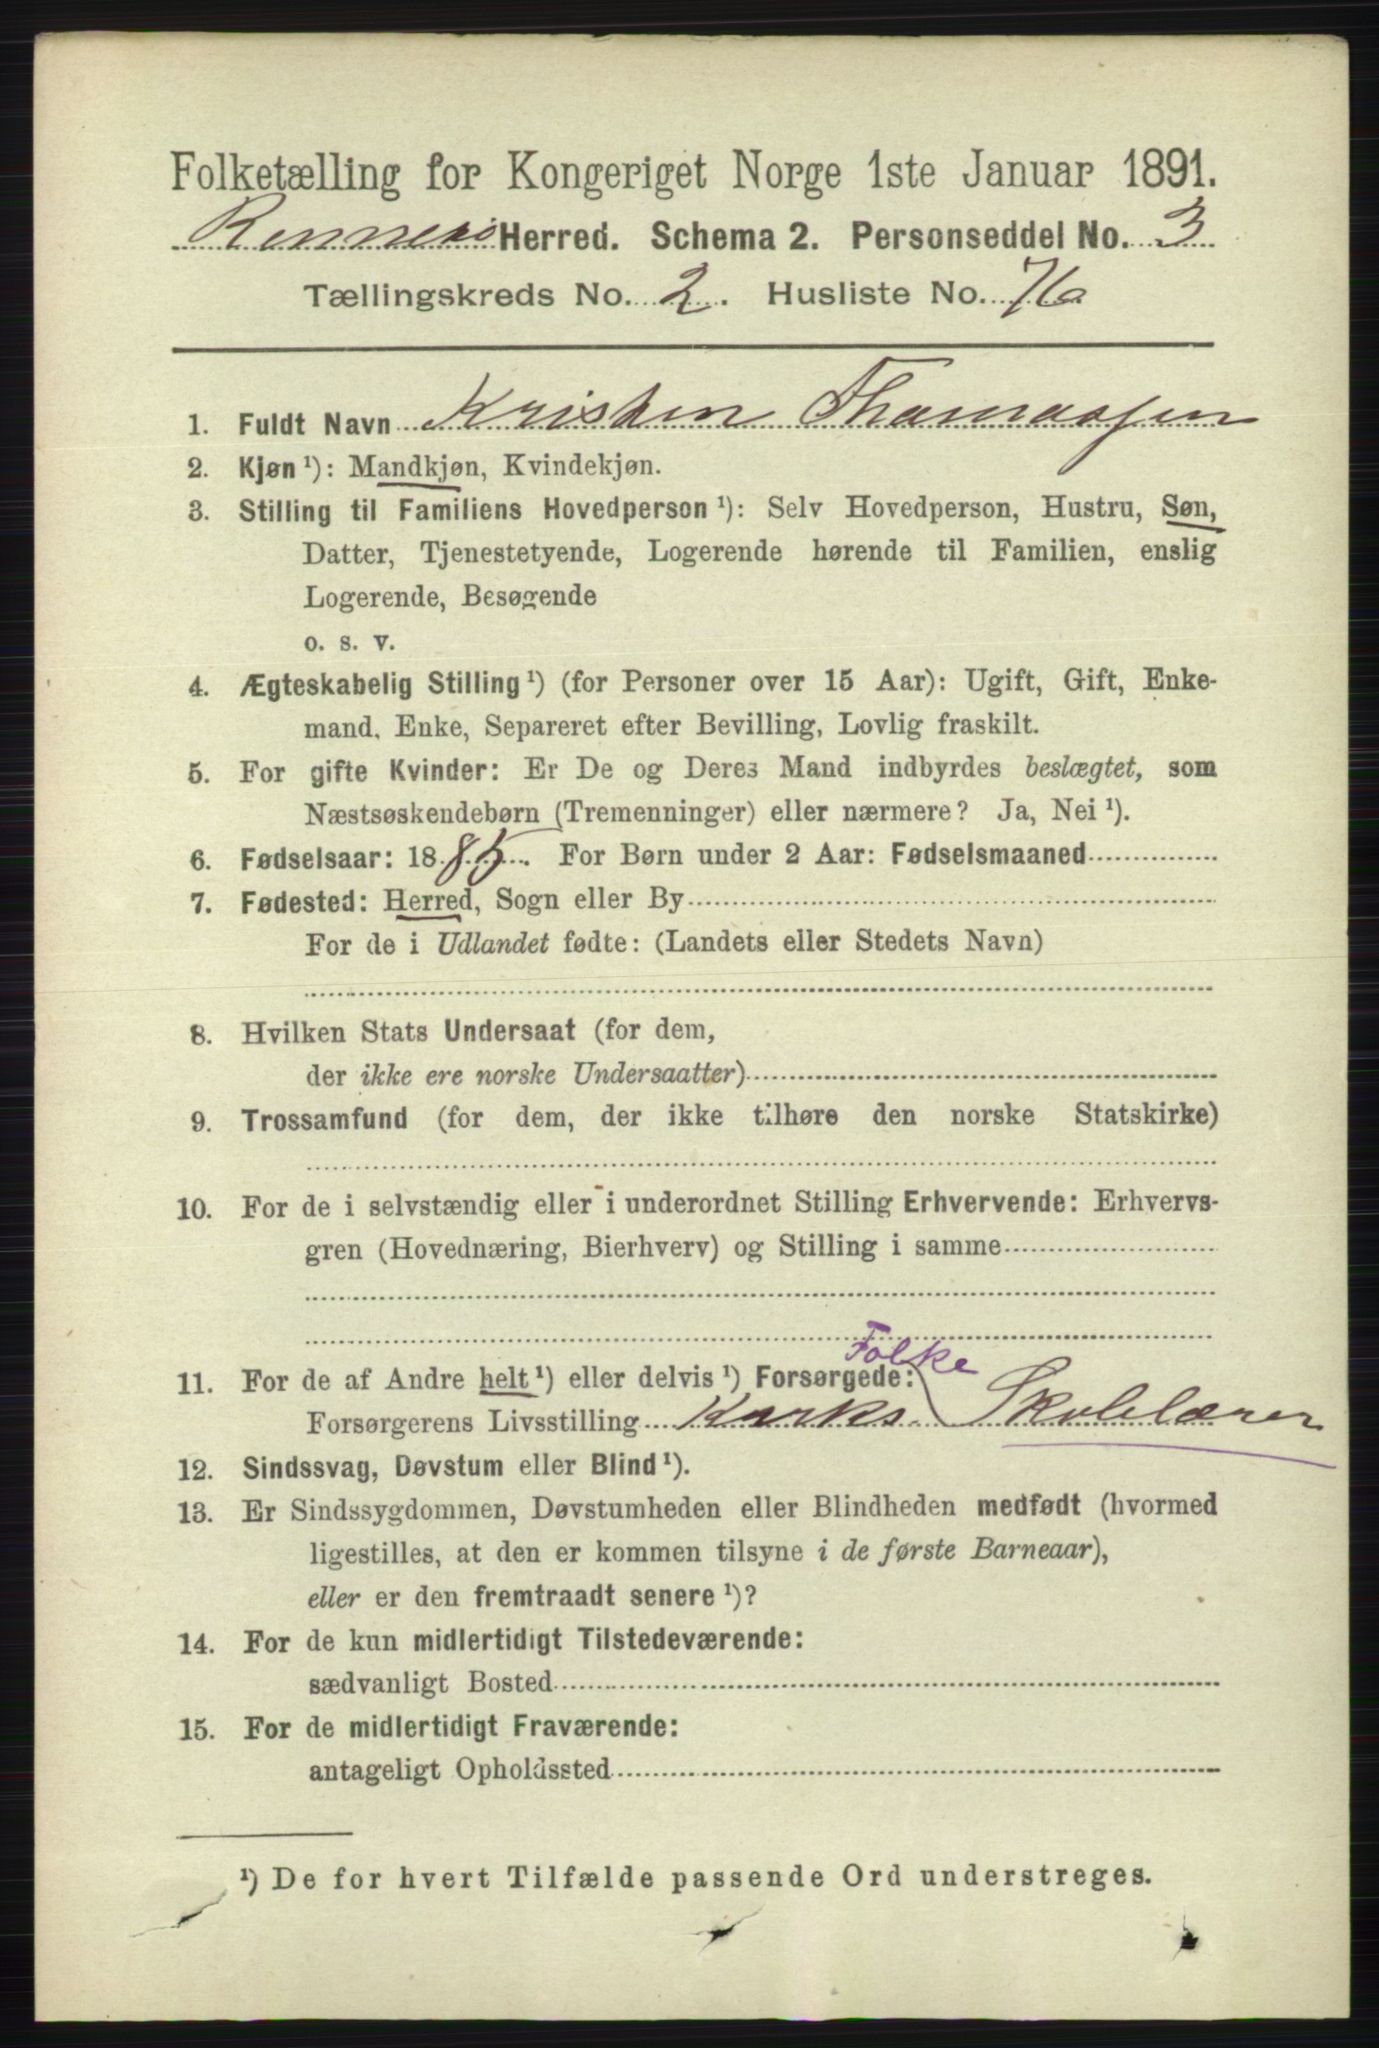 Folketælling for Kongeriget Norge 1ste Januar 1891.
Rennesø Herred. Schema 2. Personseddel No. 3
Tællingskreds No. 2. Husliste No. 76
1. Fuldt Navn Kristen Thomassen
2. Kjøn ¹): Mandkjøn, Kvindekjøn.
3. Stilling til Familiens Hovedperson ¹): Selv Hovedperson, Hustru, Søn,
Datter, Tjenestetyende, Logerende hørende til Familien, enslig
Logerende, Besøgende
o. s. v.
4. Ægteskabelig Stilling ¹) (for Personer over 15 Aar): Ugift, Gift, Enke-
mand, Enke, Separeret efter Bevilling, Lovlig fraskilt.
5. For gifte Kvinder: Er De og Deres Mand indbyrdes beslægtet, som
Næstsøskendebørn (Tremenninger) eller nærmere? Ja, Nei ¹).
6. Fødselsaar: 1885. For Børn under 2 Aar: Fødselsmaaned
7. Fødested: Herred, Sogn eller By
For de i Udlandet fødte: (Landets eller Stedets Navn)
8. Hvilken Stats Undersaat (for dem,
der ikke ere norske Undersaatter)
9. Trossamfund (for dem, der ikke tilhøre den norske Statskirke)
10. For de i selvstændig eller i underordnet Stilling Erhvervende: Erhvervs-
gren (Hovednæring, Bierhverv) og Stilling i samme
Folke
11. For de af Andre helt ¹) eller delvis ¹) Forsørgede:
Forsørgerens Livsstilling Skolelærer
12. Sindssvag, Døvstum eller Blind ¹).
13. Er Sindssygdommen, Døvstumheden eller Blindheden medfødt (hvormed
ligestilles, at den er kommen tilsyne i de første Barneaar),
eller er den fremtraadt senere ¹)?
14. For de kun midlertidigt Tilstedeværende:
sædvanligt Bosted
15. For de midlertidigt Fraværende:
antageligt Opholdssted
¹) De for hvert Tilfælde passende Ord understreges.